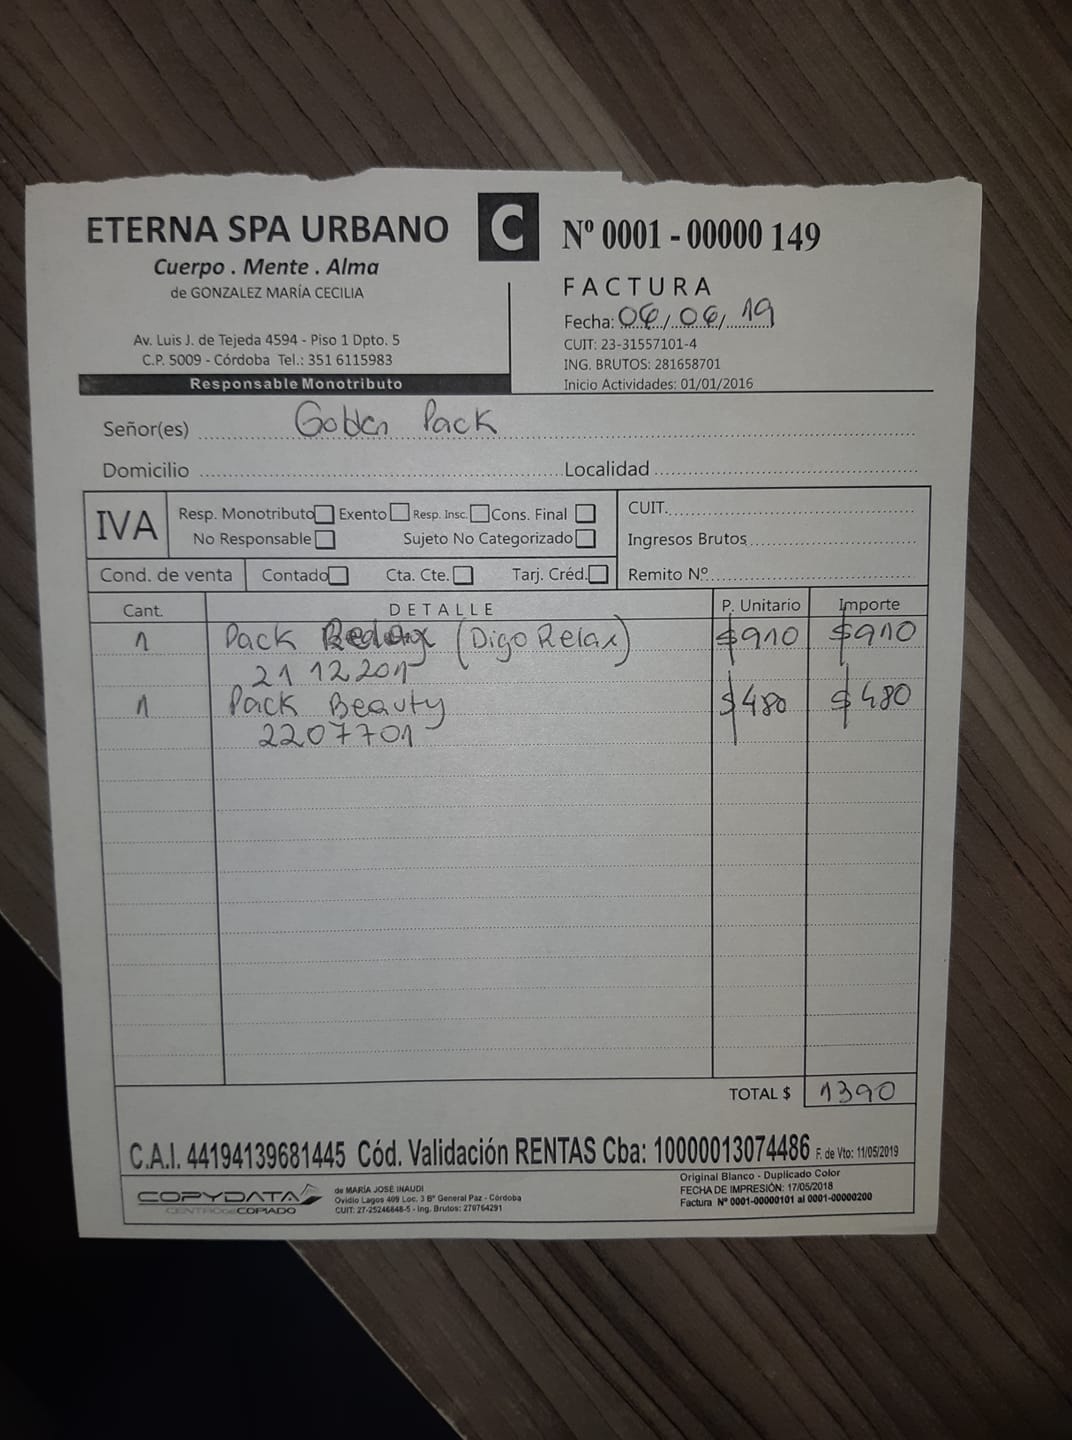 ETERNA SPA URBANO
Cuerpo . Mente . Alma
de GONZALEZ MARÍA CECILIA
Av. Luis J. de Tejeda 4594 - Piso 1 Dpto. 5
C.P. 5009 - Córdoba Tel.: 351 6115983
Responsable Monotributo
C
Nº 0001 - 00000 149
FACTURA
Fecha: 06/06/19
CUIT: 23-31557101-4
ING. BRUTOS: 281658701
Inicio Actividades: 01/01/2016
Señor(es) Golden Pack
Domicilio Localidad
IVA
Resp. Monotributo Exento Resp. Insc. Cons. Final
No Responsable Sujeto No Categorizado
CUIT.
Ingresos Brutos
Cond. de venta Contado Cta. Cte. Tarj. Créd. Remito Nº
Cant. DETALLE P. Unitario Importe
1 Pack (Digo Relax) $910 $910
21 12 201
1 Pack Beauty $480 $480
2207701
TOTAL $ 1390
C.A.I. 44194139681445 Cód. Validación RENTAS Cba: 10000013074486 F. de Vto: 11/05/2019
COPYDATA
CENTRO DE COPIADO
de MARÍA JOSÉ INAUDI
Ovidio Lagos 409 Loc. 3 Bº General Paz - Córdoba
CUIT: 27-25246848-5 - Ing. Brutos: 270764291
Original Blanco - Duplicado Color
FECHA DE IMPRESIÓN: 17/05/2018
Factura Nº 0001-00000101 al 0001-00000200